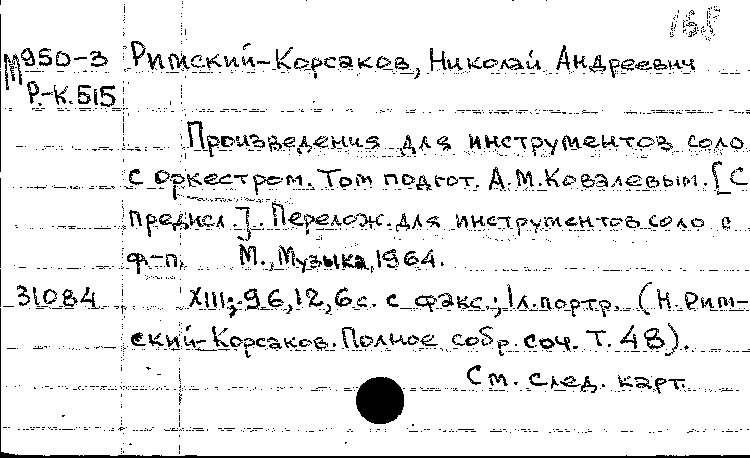 168
М950-3 Римский-Корсаков, Николай Андреевич
Р.-К.515
Произведения для инструментов соло
с оркестром. Том подгот. А.М.Ковалевым. [С
предисл.]. Перелож. для инструментов соло с
ф-п. М., Музыка, 1964.
31084 XIII; 96, 12, 6с. с факс.; 1л.портр. (Н.Рим-
ский-Корсаков. Полное собр. соч. Т. 48).
См. след. карт.